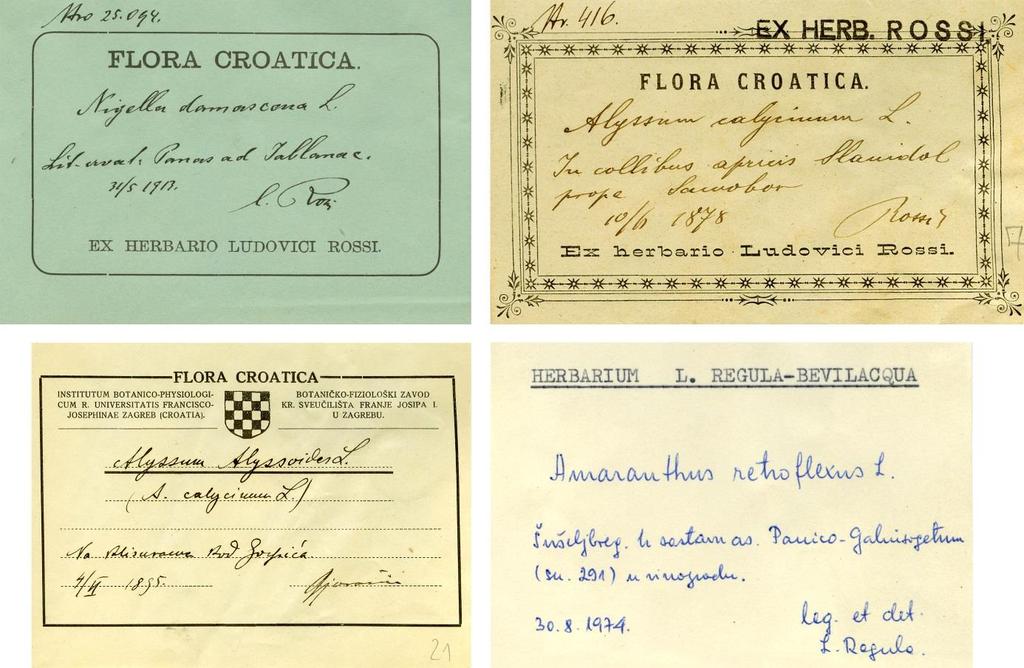 Nro 25.094.
FLORA CROATICA.
Nigella damascena L.
Lit. croat. Panas ad Jablanac.
31/5 1913.
L. Rossi
EX HERBARIO LUDOVICI ROSSI.
Nr. 416.
EX HERB. ROSSI.
FLORA CROATICA.
Alyssum calycinum L.
In collibus apricis Slanidol
prope Samobor
10/6 1878
Rossi
Ex herbario Ludovici Rossi.
7
FLORA CROATICA
INSTITUTUM BOTANICO-PHYSIOLOGI-
CUM R. UNIVERSITATIS FRANCISCO-
JOSEPHINAE ZAGREB (CROATIA).
BOTANIČKO-FIZIOLOŠKI ZAVOD
KR. SVEUČILIŠTA FRANJE JOSIPA I.
U ZAGREBU.
Alyssum Alyssoides L.
(A. calycinum L.)
Na klisurama kod
4/II 1895.
21
HERBARIUM L. REGULA-BEVILACQUA
Amaranthus retroflexus L.
U sastavu as. Panico-Galinsogetum
(sn. 291) u vinogradu.
30.8.1974.
leg. et det.
L. Regula.